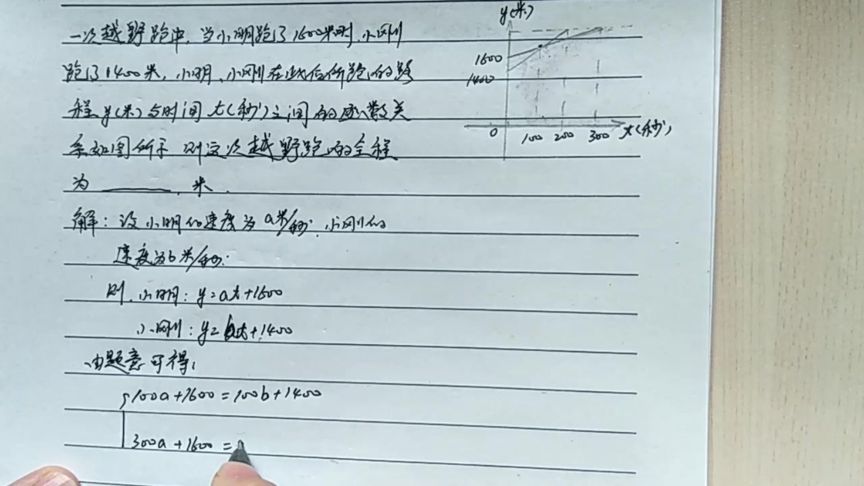 一次越野跑中,当小明跑了1600米时,小刚
跑了1400米,小明、小刚在此后所跑的路
程y(米)与时间t(秒)之间的函数关
系如图所示,则这次越野跑的全程
为 ______ 米.
解:设小明的速度为a米/秒,小刚的
速度为b米/秒.
则,小明:y=at+1600
小刚:y=bt+1400
由题意可得:
100a+1600=100b+1400
300a+1600=
y(米)
1600
1400
0 100 200 300 t(秒)